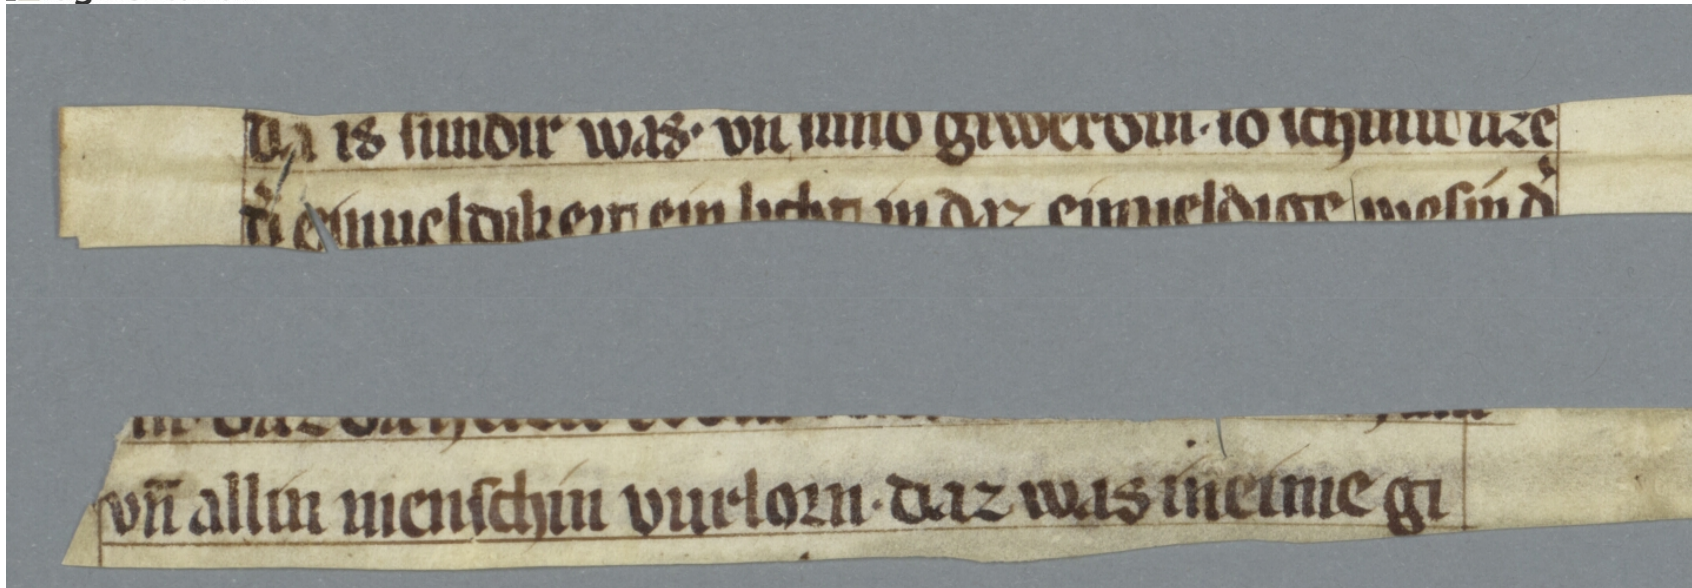 da is sundir was· vn̄ sund giwerdin· so schinit vze
d̛ einueldikeit ein licht in daz einueldige wesin d̛
in· daz da
vn̄ allin menschin vurlorn· daz was in eime gi